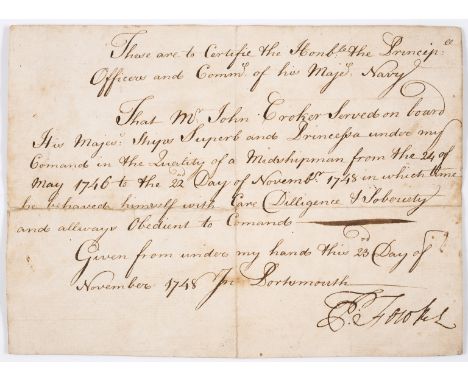 These are to Certifie the Honb.le the Princip.ll
Officers and Comm.rs of his Maj.s Navy
That Mr. John Croker Served on board
His Majes.s Ships Superb and Princessa under my
Comand in the Quality of a Midshipman from the 24 of
May 1746 to the 22d Day of Novembr. 1748 in which time
he behaved himself with Care Dilligence & Soboriety
and allways Obedient to Comand
Given from under my hand this 23d Day of
November 1748 In Portsmouth
T: Fowke